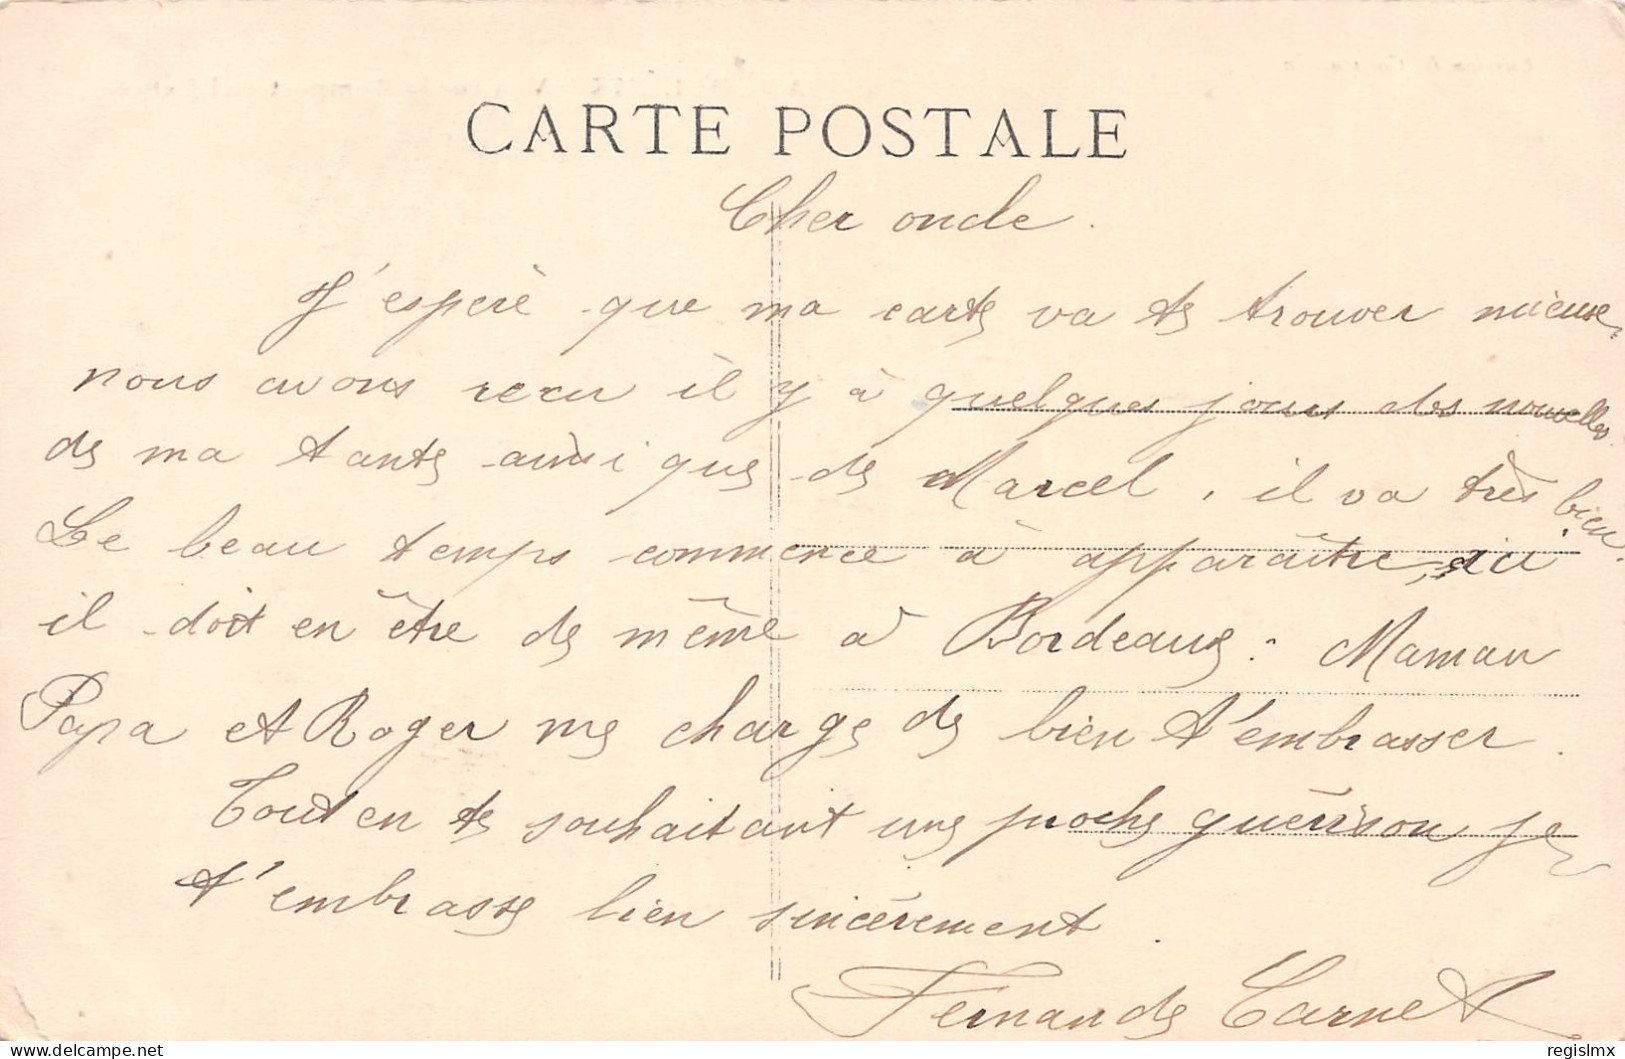 CARTE POSTALE
Cher oncle.
J'espère que ma carte va te trouver mieux,
nous avons recu il y à quelques jours des nouelles
de ma tante ainsi que de Marcel, il va très bien.
Le beau temps commence à apparaître, ici
il doit en être de même à Bordeaux. Maman
Papa et Roger me charge de bien t'embrasser.
Tout en te souhaitant une proche guérison je
t'embrasse bien sincérement.
Fernande
regislmx
delcampe.net